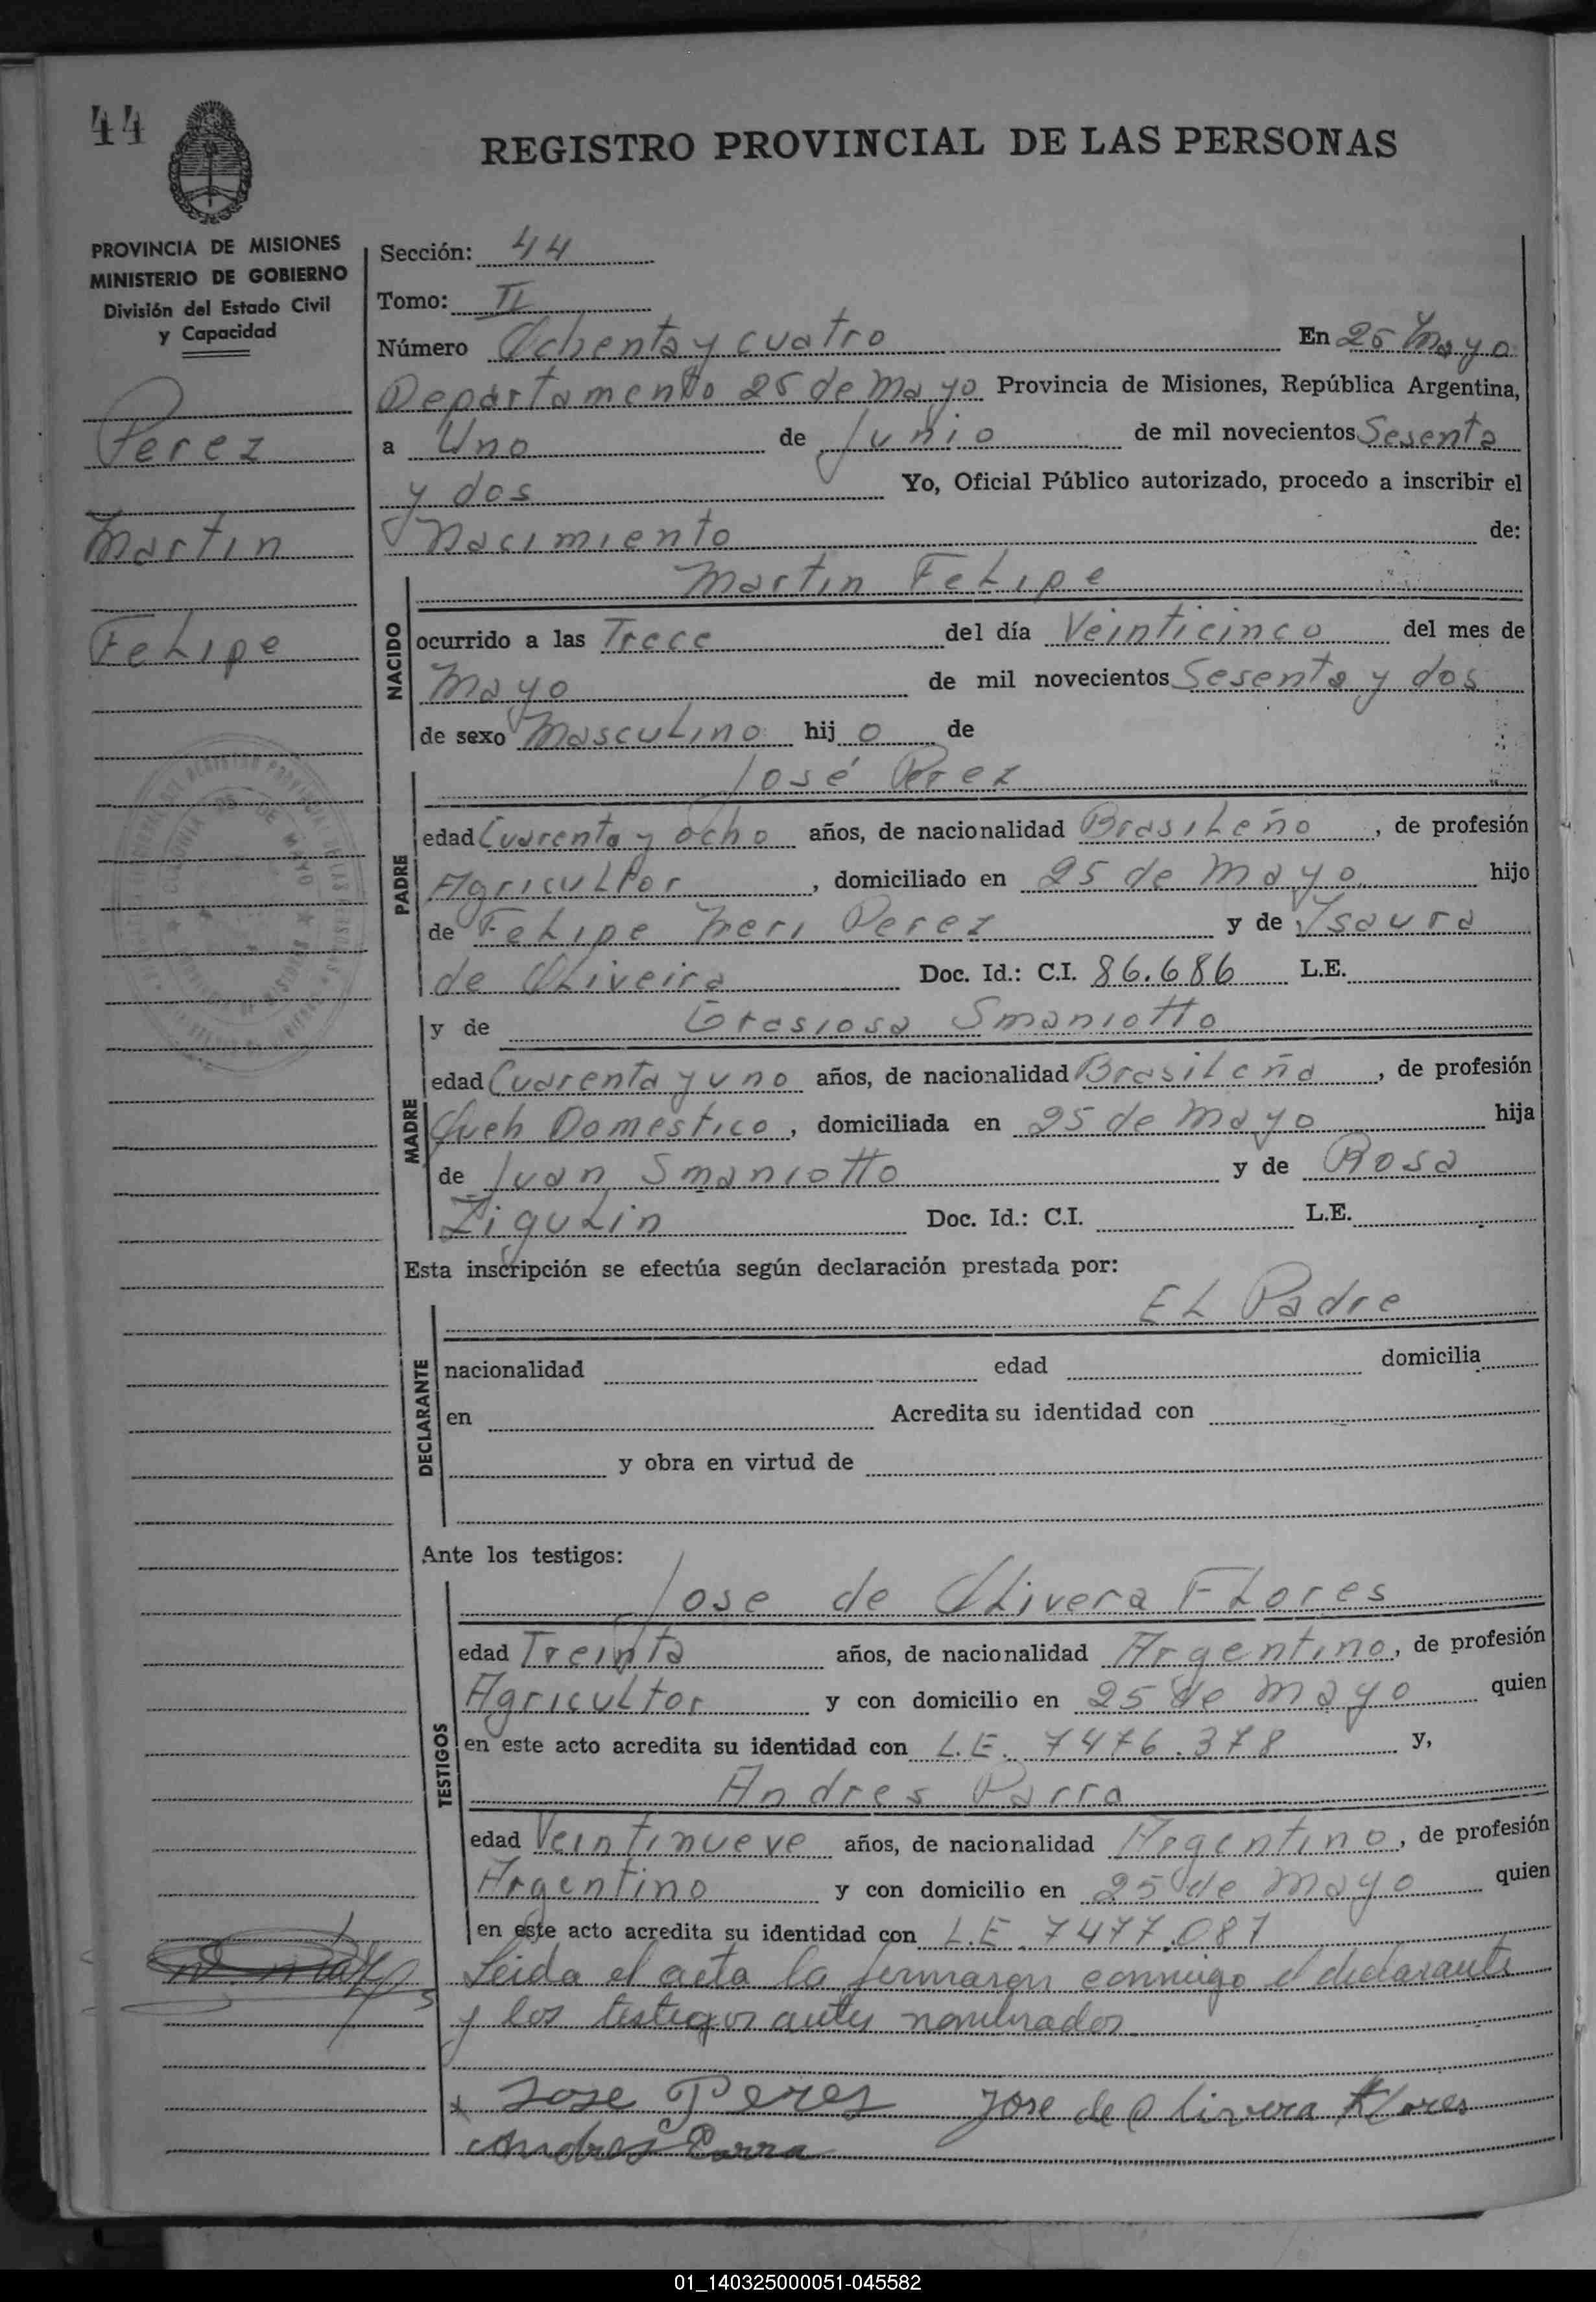 44
REGISTRO PROVINCIAL DE LAS PERSONAS
PROVINCIA DE MISIONES
MINISTERIO DE GOBIERNO
División del Estado Civil
y Capacidad
Perez
Martin
FeLipe
Sección: 44
Tomo: II
Número Ochenta y cuatro En 25 Mayo
Departamento 25 de Mayo Provincia de Misiones, República Argentina,
a Uno de Junio de mil novecientos Sesenta
y dos Yo, Oficial Público autorizado, procedo a inscribir el
Nacimiento de:
NACIDO
Martin FeLipe
ocurrido a las Trece del día Veinticinco del mes de
Mayo de mil novecientos Sesenta y dos
de sexo MascuLino hijo de
PADRE
José Perez
edad Cuarenta y ocho años, de nacionalidad BrasiLeño, de profesión
AgricuLtor, domiciliado en 25 de Mayo hijo
de FeLipe Neri Perez y de Ysaura
de OLiveira Doc. Id.: C.I. 86.686 L.E.
MADRE
y de Grasiosa Smaniotto
edad Cuarenta y uno años, de nacionalidad BrasiLeña, de profesión
Queh Domestico, domiciliada en 25 de Mayo hija
de Juan Smaniotto y de Rosa
ZiguLin Doc. Id.: C.I. L.E.
Esta inscripción se efectúa según declaración prestada por:
EL Padre
DECLARANTE
nacionalidad edad domicilia
en Acredita su identidad con
y obra en virtud de
Ante los testigos:
TESTIGOS
Jose de OLivera FLores
edad Treinta años, de nacionalidad Argentino, de profesión
AgricuLtor y con domicilio en 25 de Mayo quien
en este acto acredita su identidad con L.E. 7476.378 y,
Andres Parra
edad Veintinueve años, de nacionalidad Argentino, de profesión
Argentino y con domicilio en 25 de Mayo quien
en este acto acredita su identidad con L.E. 7477.087
Leida el acta la firmaron conmigo el declarante
y los testigos antes nombrados
x Jose Peres Jose de Olivera Flores
Andres Parra
01_140325000051-045582